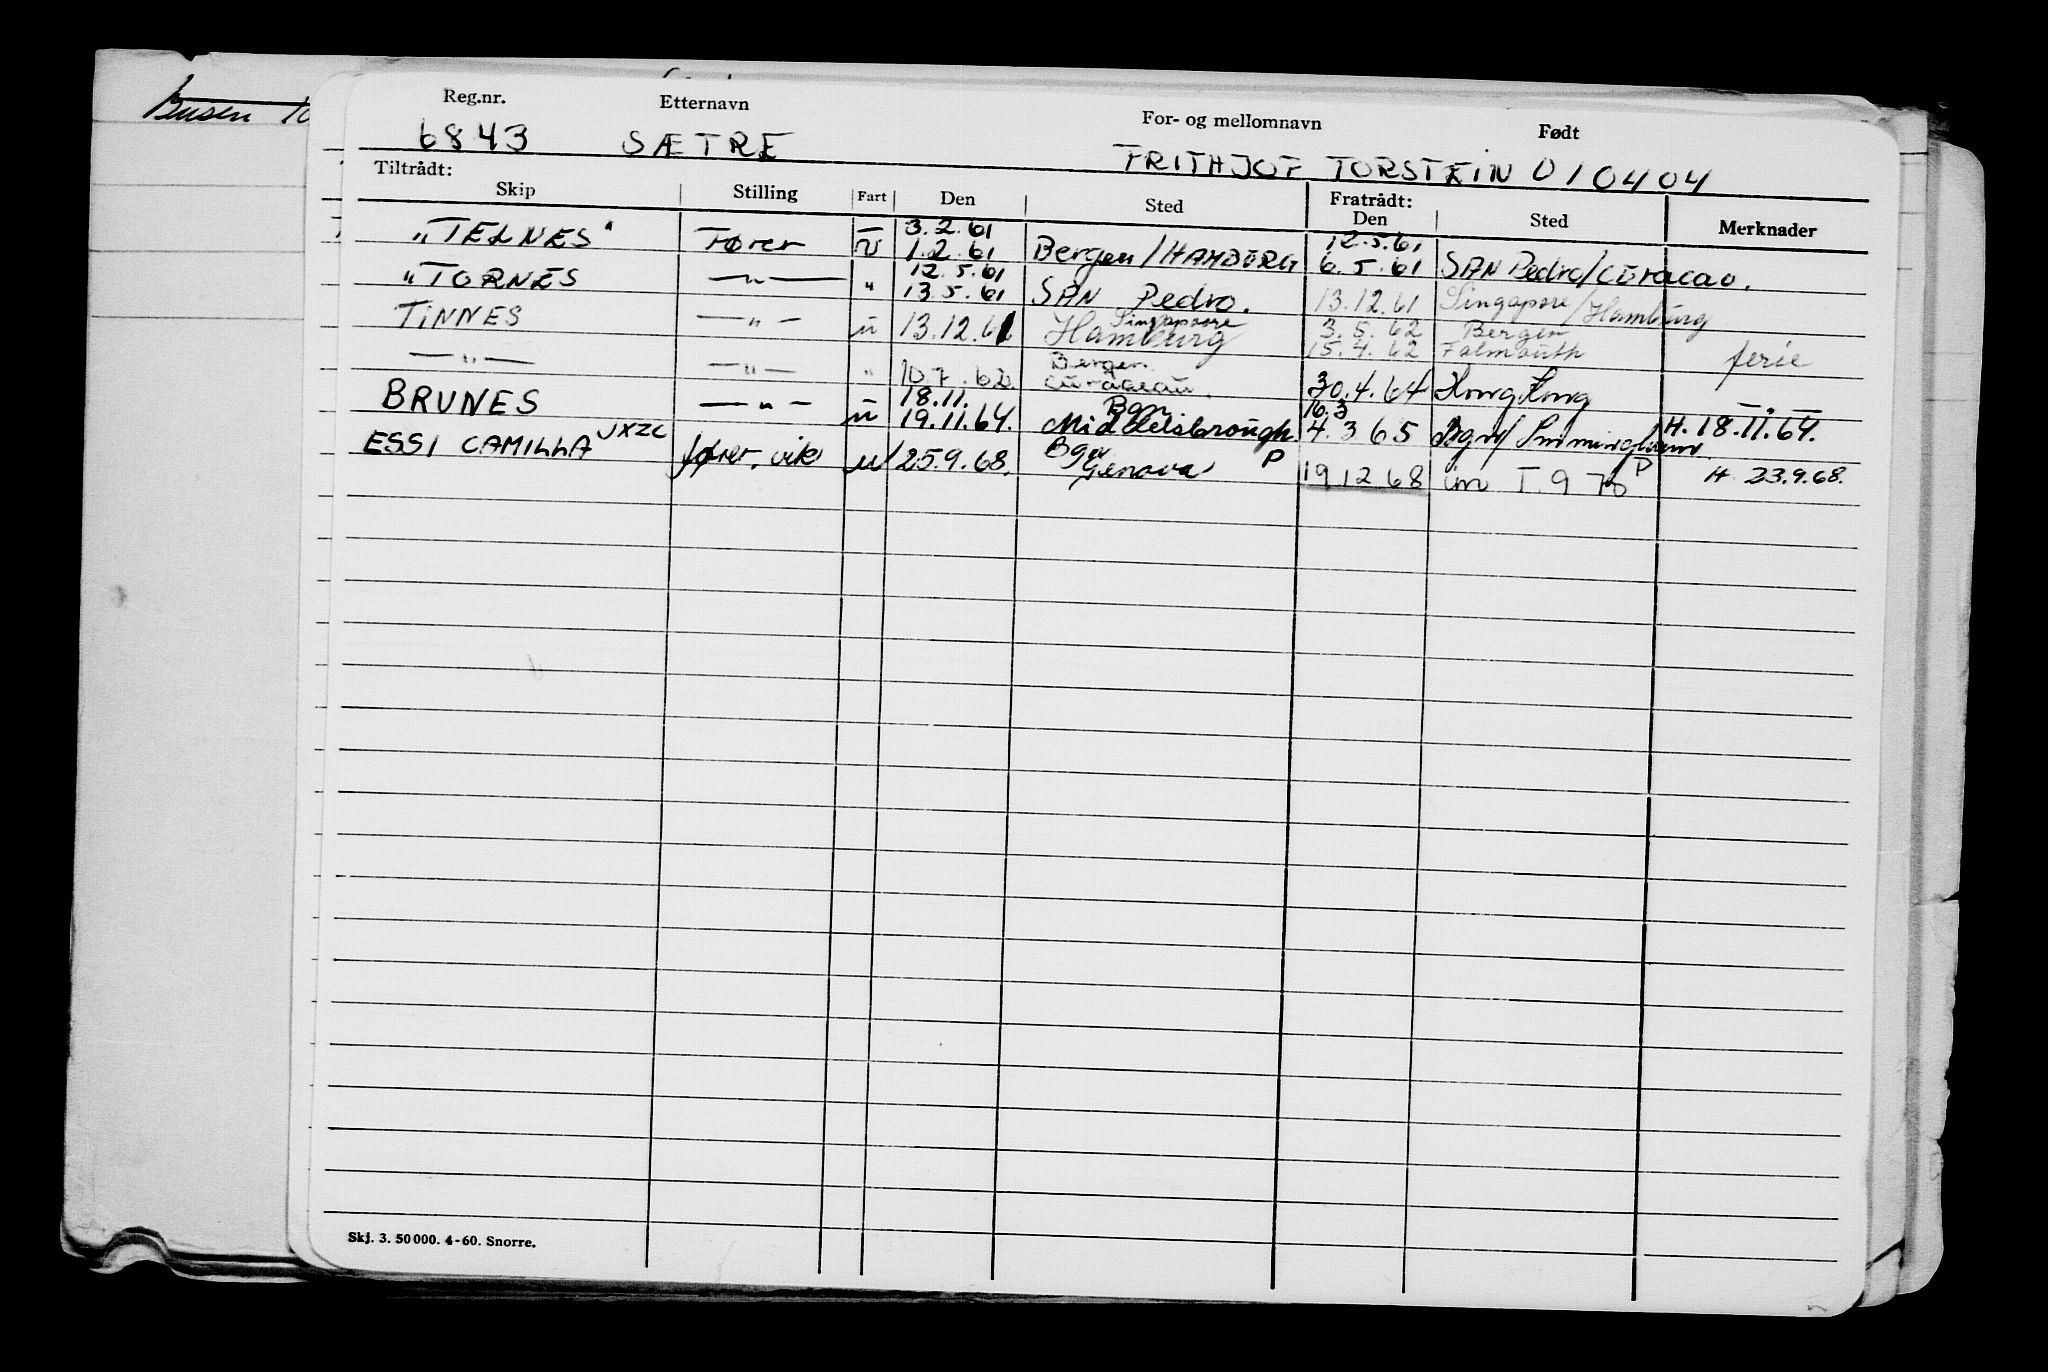 Reg.nr. Etternavn For- og mellomnavn Født
6843 SÆTRE FRITHJOF TORSTEIN 010404
Tiltrådt: Fratrådt:
Skip Stilling Fart Den Sted Den Sted Merknader
3.2.61 12.5.61
"TELNES" Fører u 1.2.61 Bergen/HAMBURG 6.5.61 SAN Pedro/CURACAO.
12.5.61
"TORNES — " — " 13.5.61 SAN Pedro. 13.12.61 Singapore/Hamburg
Singapore 3.5.62 Bergen
TINNES — " — u 13.12.61 Hamburg 15.4.62 Falmouth ferie
Bergen
— " — — " — " 10.7.62 curaceau. 30.4.64 Hong Kong
18.11. Bgn 10.3 — " —
BRUNES — " — u 19.11.64. Middelsbrough. 4.3 65 Bgn/ H. 18.11.64.
ESSI CAMILLA JXZC fører, vik u 25.9.68. Bgn P
Genova 19 12 68 im T. 9 78 P H 23.9.68.
Skj. 3. 50 000. 4-60. Snorre.